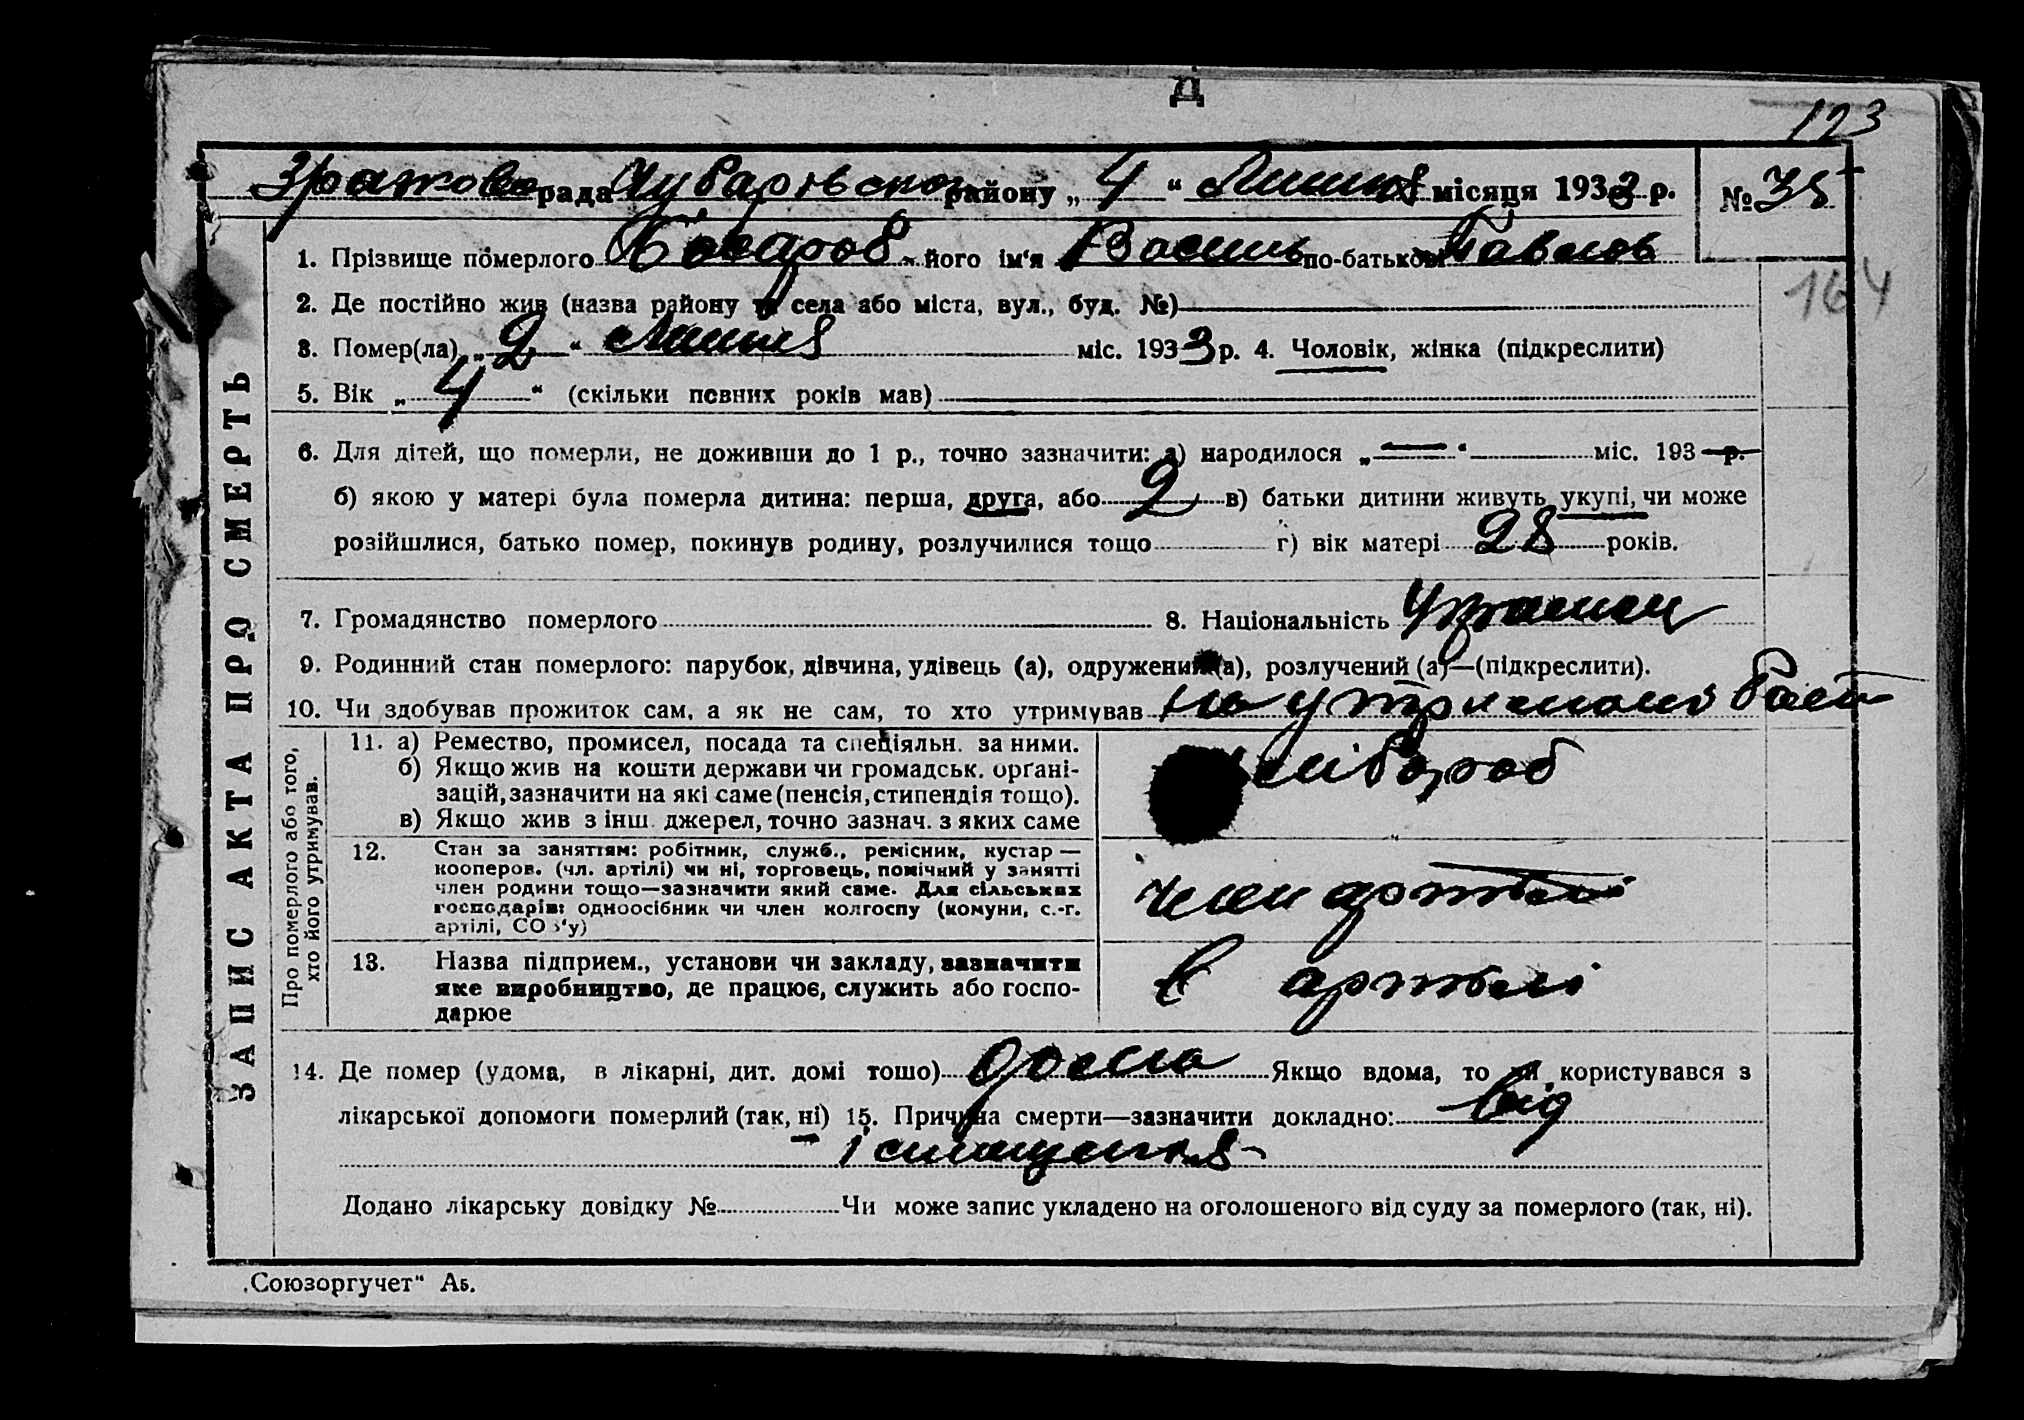 Д
123
рада Чубарівського району „ 4 “ Липня місяця 1933 р. № 35
164
1. Прізвище померлого його ім'я Василь по-батькові Павлов
2. Де постійно жив (назва району та села або міста, вул., буд. №)
3. Помер(ла) „ 2 “ Липня міс. 1933 р. 4. Чоловік, жінка (підкреслити)
5. Вік „ 4 “ (скільки повних років мав)
6. Для дітей, що померли, не доживши до 1 р., точно зазначити: а) народилося „ — “ міс. 193 р.
б) якою у матері була померла дитина: перша, друга, або 2 в) батьки дитини живуть укупі, чи може
розійшлися, батько помер, покинув родину, розлучилися тощо г) вік матері 28 років.
7. Громадянство померлого 8. Національність Украинец
9. Родинний стан померлого: парубок, дівчина, удівець (а), одружений (а), розлучений (а)—(підкреслити).
10. Чи здобував прожиток сам, а як не сам, то хто утримував на утриманні
ЗАПИС АКТА ПРО СМЕРТЬ
Про померлого або того,
хто його утримував.
11. а) Ремество, промисел, посада та спеціяльн. за ними.
б) Якщо жив на кошти держави чи громадськ. органі-
зацій, зазначити на які саме (пенсія, стипендія тощо).
в) Якщо жив з інш. джерел, точно зазнач. з яких саме
хлібороб
12. Стан за заняттям: робітник, служб., ремісник, кустар —
кооперов. (чл. артілі) чи ні, торговець, помічний у занятті
член родини тощо—зазначити який саме. Для сільських
господарів: одноосібник чи член колгоспу (комуни, с.-г.
артілі, СОЗ'у)
член артелі
13. Назва підприєм., установи чи закладу, зазначити
яке виробництво, де працює, служить або госпо-
дарює
в артелі
14. Де помер (удома, в лікарні, дит. домі тощо) дома Якщо вдома, то чи користувався з
лікарської допомоги померлий (так, ні) 15. Причина смерти—зазначити докладно: від
істощення
Додано лікарську довідку № Чи може запис укладено на оголошеного від суду за померлого (так, ні).
„Союзоргучет“ Аб.